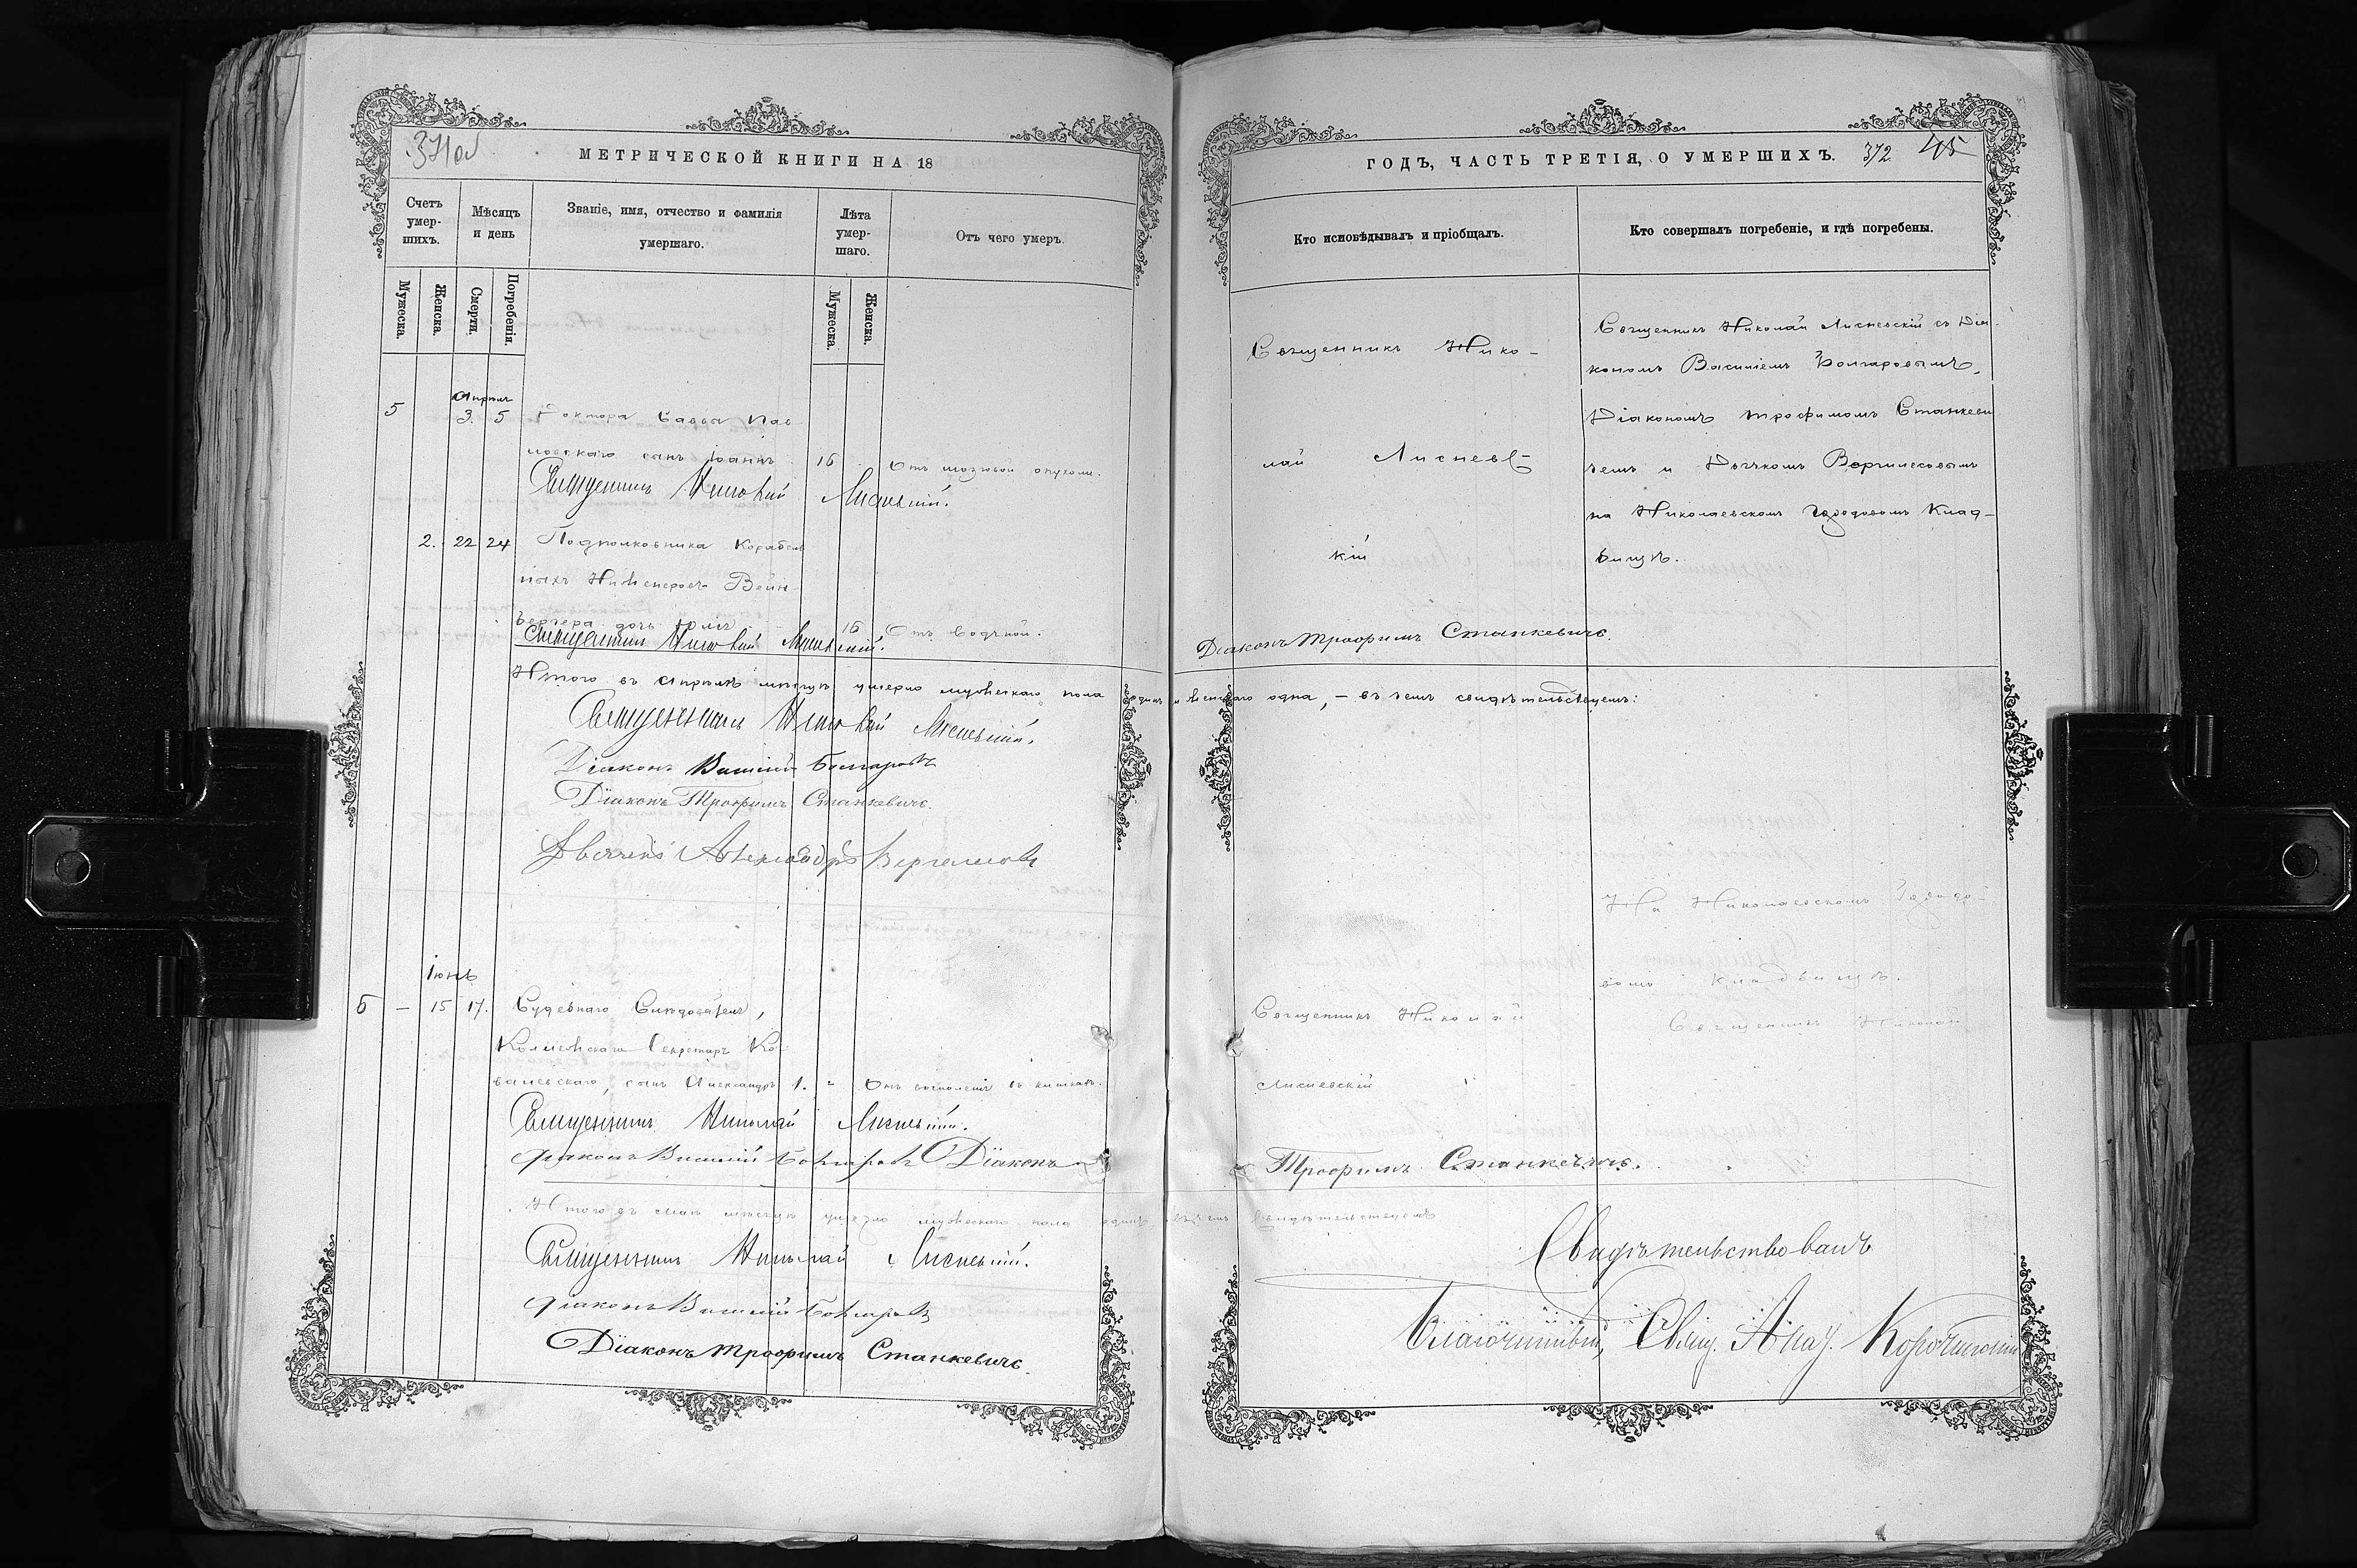 МЕТРИЧЕСКОЙ КНИГИ НА 18
Счетъ умер-шихъ.
Мѣсяцъ и день
Званіе, имя, отчество и фамилія умершаго.
Лѣта умер-шаго.
Отъ чего умеръ.
Мужеска.
Женска.
Смерти.
Погребенія.
Мужеска.
Женска.
Апрѣль
5 3. 5 Доктора Савва Пав
ловскаго сынъ Іоаннъ 16 Отъ мозговой опухоли.
Священникъ Николай Лисневскій.
2. 22 24 Подполковника Корабель
ныхъ Инженеровъ Вейн-
бергера дочь Юлія 16 Отъ водяной.
Священникъ Николай Лисневскій.
Итого въ Апрѣлѣ мѣсяцѣ умерло мужескаго пола одинъ и женскаго одна, – въ чемъ свидѣтельствуемъ:
Священникъ Николай Лисневскій.
Діаконъ Василій Болгаровъ
Діаконъ Трофимъ Станкевичъ.
Александръ
Іюнь
6 – 15 17. Судебнаго Слѣдователя,
Коллежскаго Секретаря Ко-
валевскаго, сынъ Александръ 1. " Отъ воспаленія въ кишкахъ.
Священникъ Николай Лисневскій.
Діаконъ Василій Болгаровъ Діаконъ
Итого въ мѣсяцѣ умерло мужескаго пола одинъ въ чемъ свидѣтельствуемъ
Священникъ Николай Лисневскій.
Діаконъ Василій Болгаровъ
Діаконъ Трофимъ Станкевичъ
ГОДЪ, ЧАСТЬ ТРЕТІЯ, О УМЕРШИХЪ. 372 45
Кто исповѣдывалъ и пріобщалъ.
Кто совершалъ погребеніе, и гдѣ погребены.
Священникъ Нико-
лай Лисневс
кій
Священникъ Николай Лисневскій съ Діа
кономъ Василіемъ Болгаровымъ,
Діакономъ Трофимомъ Станкеви
чемъ и Дьячкомъ
на Николаевскомъ Городовомъ Клад-
бищѣ.
Діаконъ Трофимъ Станкевичъ.
На Николаевскомъ Городо-
вомъ Кладбищѣ.
Священникъ Николай
Священникъ Николай
Лисневскій
Трофимъ Станкевичъ.
Свидѣтельствовалъ
Благочинный, Свящ.